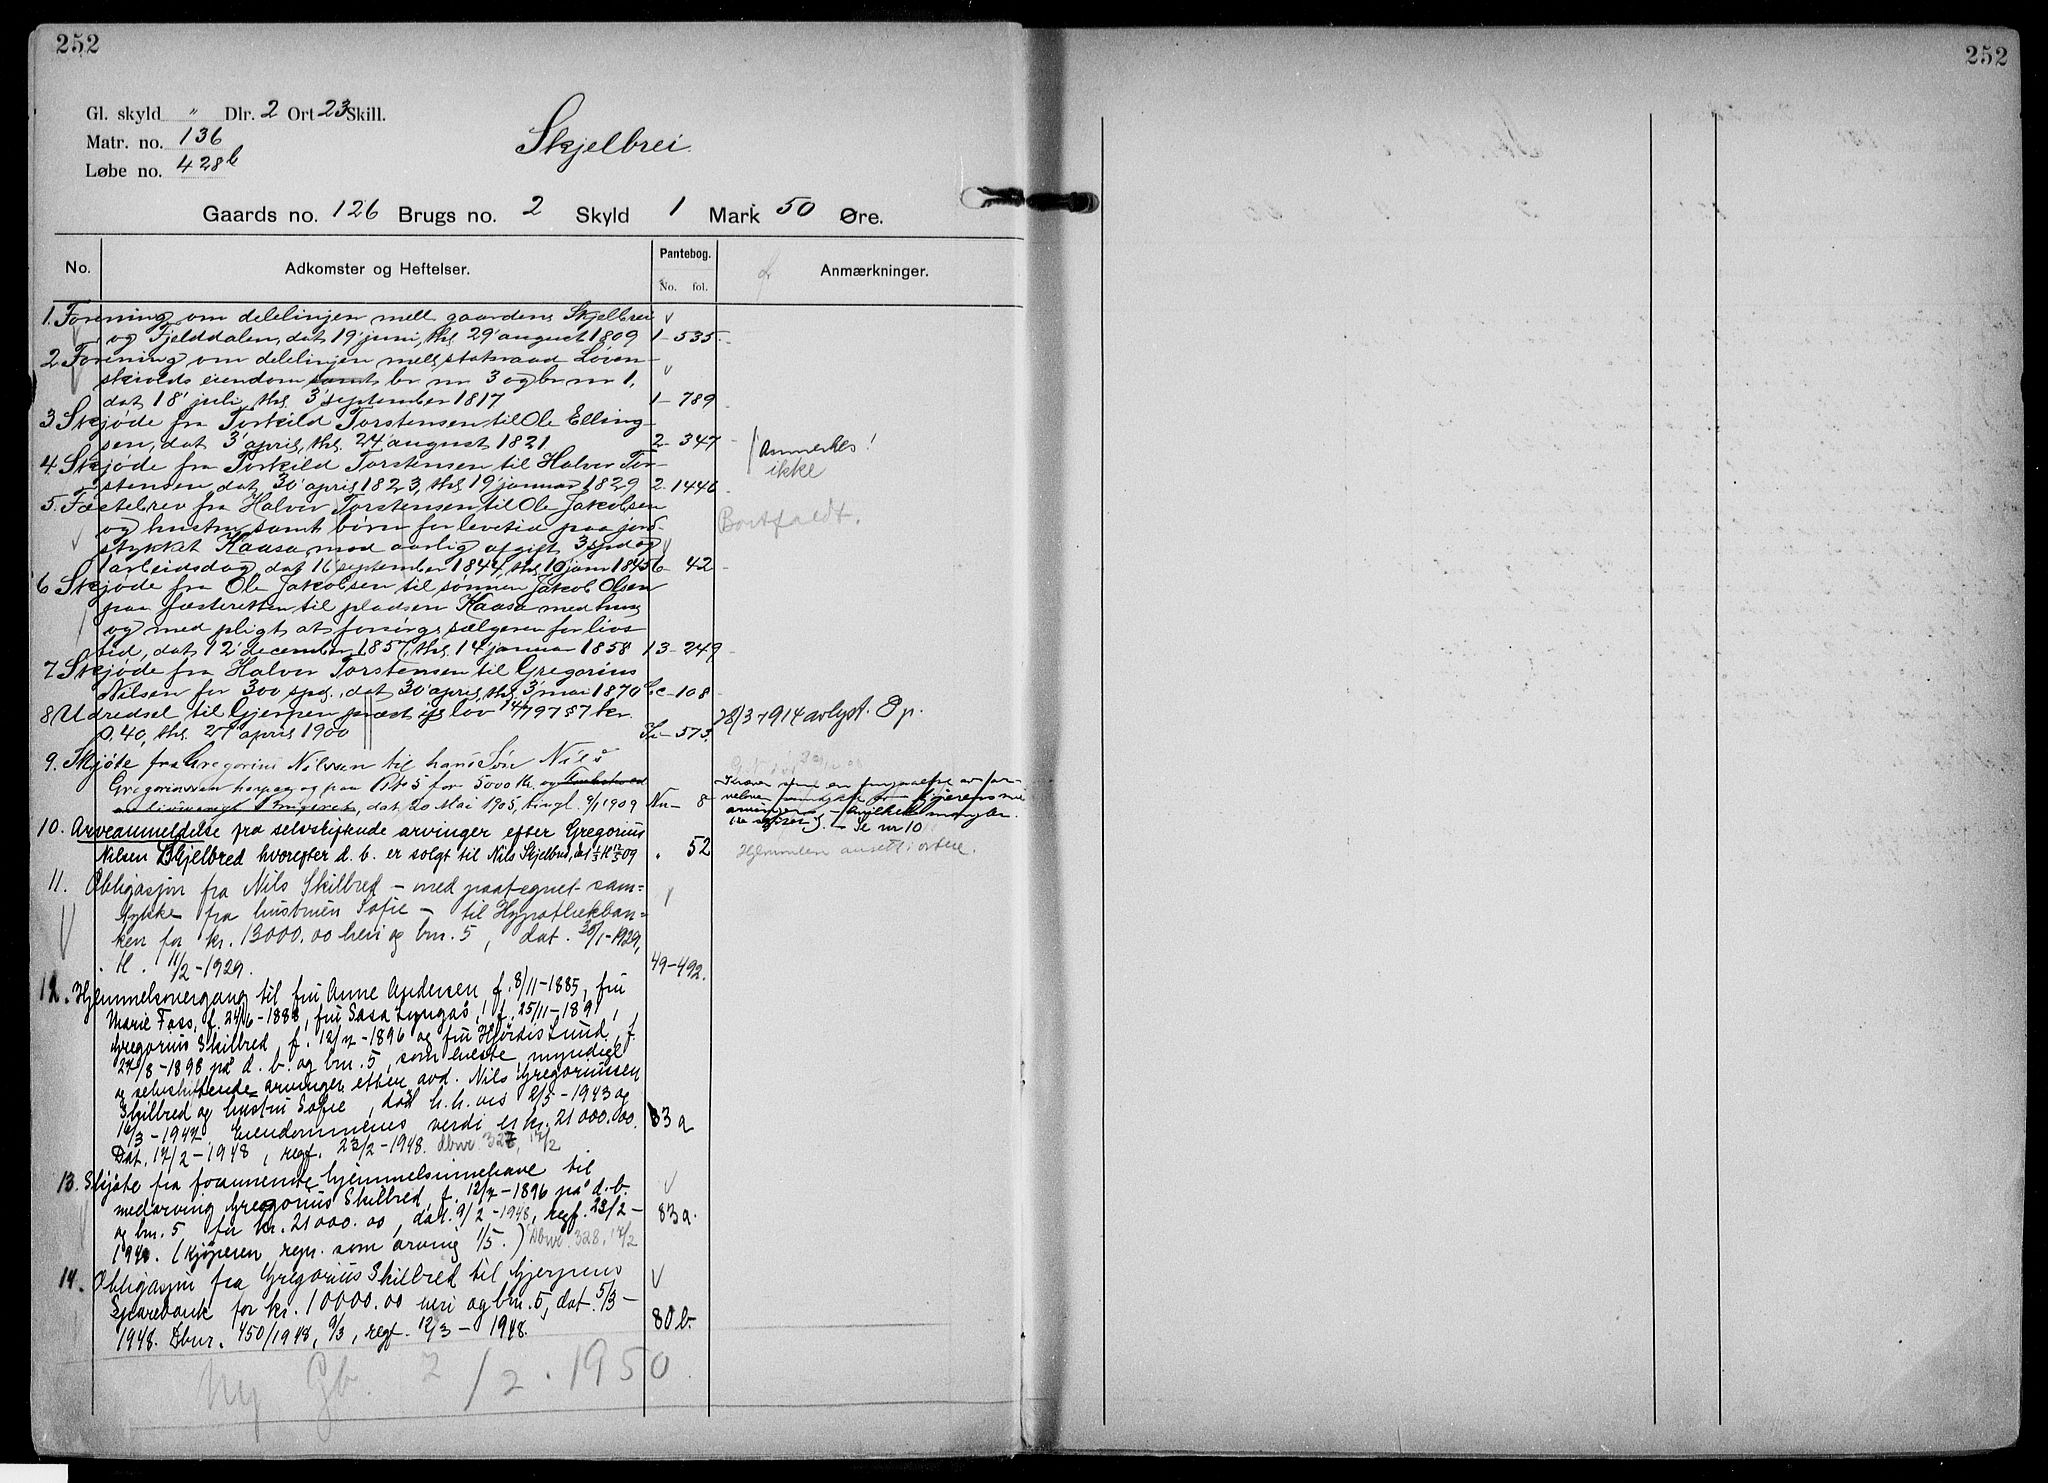 252
252
Gl. skyld " Dlr. 2 Ort 23 Skill.
Matr. no. 136
Løbe no. 428b
Skjelbrei
Gaards no. 126 Brugs no. 2 Skyld 1 Mark 50 Øre.
No. Adkomster og Heftelser. Pantebog. No. fol. Anmærkninger.
1. Forening om delelinjen mell. gaardene Skjelbrei
og Fjelddalen, dat 19' juni, thl 29' august 1809 1- 535.
2 Forening om delelinjen mell. statsraad Løven-
skiolds eiendom samt br nr 3 og br nr 1,
dat 18' juli, thl 3' september 1817 1- 789
3 Skjøde fra Torkild Torstensen til Ole Elling-
sen, dat 3' april, thl. 24' august 1821 2- 347
4. Skjøde fra Torkild Torstensen til Halvor Tor-
stensen, dat 30' april 1823, thl 19' januar 1829 2- 1446
(Anmerkes!
ikke
5. Fæstebrev fra Halvor Torstensen til Ole Jakobsen
og hustru samt børn for levetid paa jord-
stykket Kaasa mod aarlig afgift 3 spd og
1 arbeidsdag, dat 16 september 1844, thl 10 juni 1845 6- 42
Bortfaldt.
6 Skjøde fra Ole Jakobsen til sønnen Jakob Olsen
paa fæsteretten til pladsen Kaasa med hus
og med pligt at forsørge sælgeren for livs
tid, dat 12' december 1857, thl 14' januar 1858 13- 249
7 Skjøde fra Halvor Torstensen til Gregorius
Nilsen for 300 spd., dat 30' april, thl 3' mai 1870 - 108
8 Udredsel til Gjerpen præst if lov 14/7 97 57 kr.
0.40, thl 27 april 1900 - 573.
28/3-1914 avlyst. Op.
9. Skjøte fra Gregorius Nilsen til hans Søn Nils
Gregoriussen herpaa og paa Bno 5 for 5000 Kr. og
dat. 20 Mai 1905, tingl. 9/1 1909 Nu- 8
se nr 10
10. Arveanmeldelse fra selvskiftende arvinger efter Gregorius
Nilsen Skjelbred hvorefter d. b. er solgt til Nils Skjelbred, " 52
Hjemmelen ansett i ordne.
11. Obligasjon fra Nils Skilbred – med paategnet sam=
tykke fra hustruen Sofie – til Hypothekban=
ken for kr. 13000.00 heri og bnr. 5, dat. 30/1-1929,
tl. 11/2-1929. 49-492.
12. Hjemmelsovergang til fru Anne Andersen, f. 8/11-1885, fru
Marie Foss, f. 24/6-1888, fru Sasa Lyngås, f. 25/11-1891,
Gregorius Skilbred, f. 12/7-1896 og fru Hjørdis Lund, f.
27/8-1898 på d. b. og bnr. 5, som eneste, myndige
og selvskiftende arvinger etter avd. Nils Gregoriussen
Skilbred og hustru Sofie, død h.h.vis 2/5-1943 og
16/3-1947. Eiendommenes verdi er kr. 21000.00. 83a
Dat. 17/2-1948, regf. 23/2-1948. Dbnr. 327, 17/2
13. Skjøte fra forannevnte hjemmelsinnehave til
medarving Gregorius Skilbred, f. 12/7-1896 på d.b.
og bnr. 5 for kr. 21000.00, dat. 9/2-1948, regf. 23/2- 83a.
1948. (Kjøperen repr. som arving 1/5.) Dbnr. 328, 17/2
14. Obligasjon fra Gregorius Skilbred til Gjerpens
Sparebank for kr. 10000.00 heri og bnr. 5, dat. 5/3-
1948. Dbnr. 450/1948, 9/3, regf. 12/3-1948. 80b.
Ny Gb. 2/2.1950